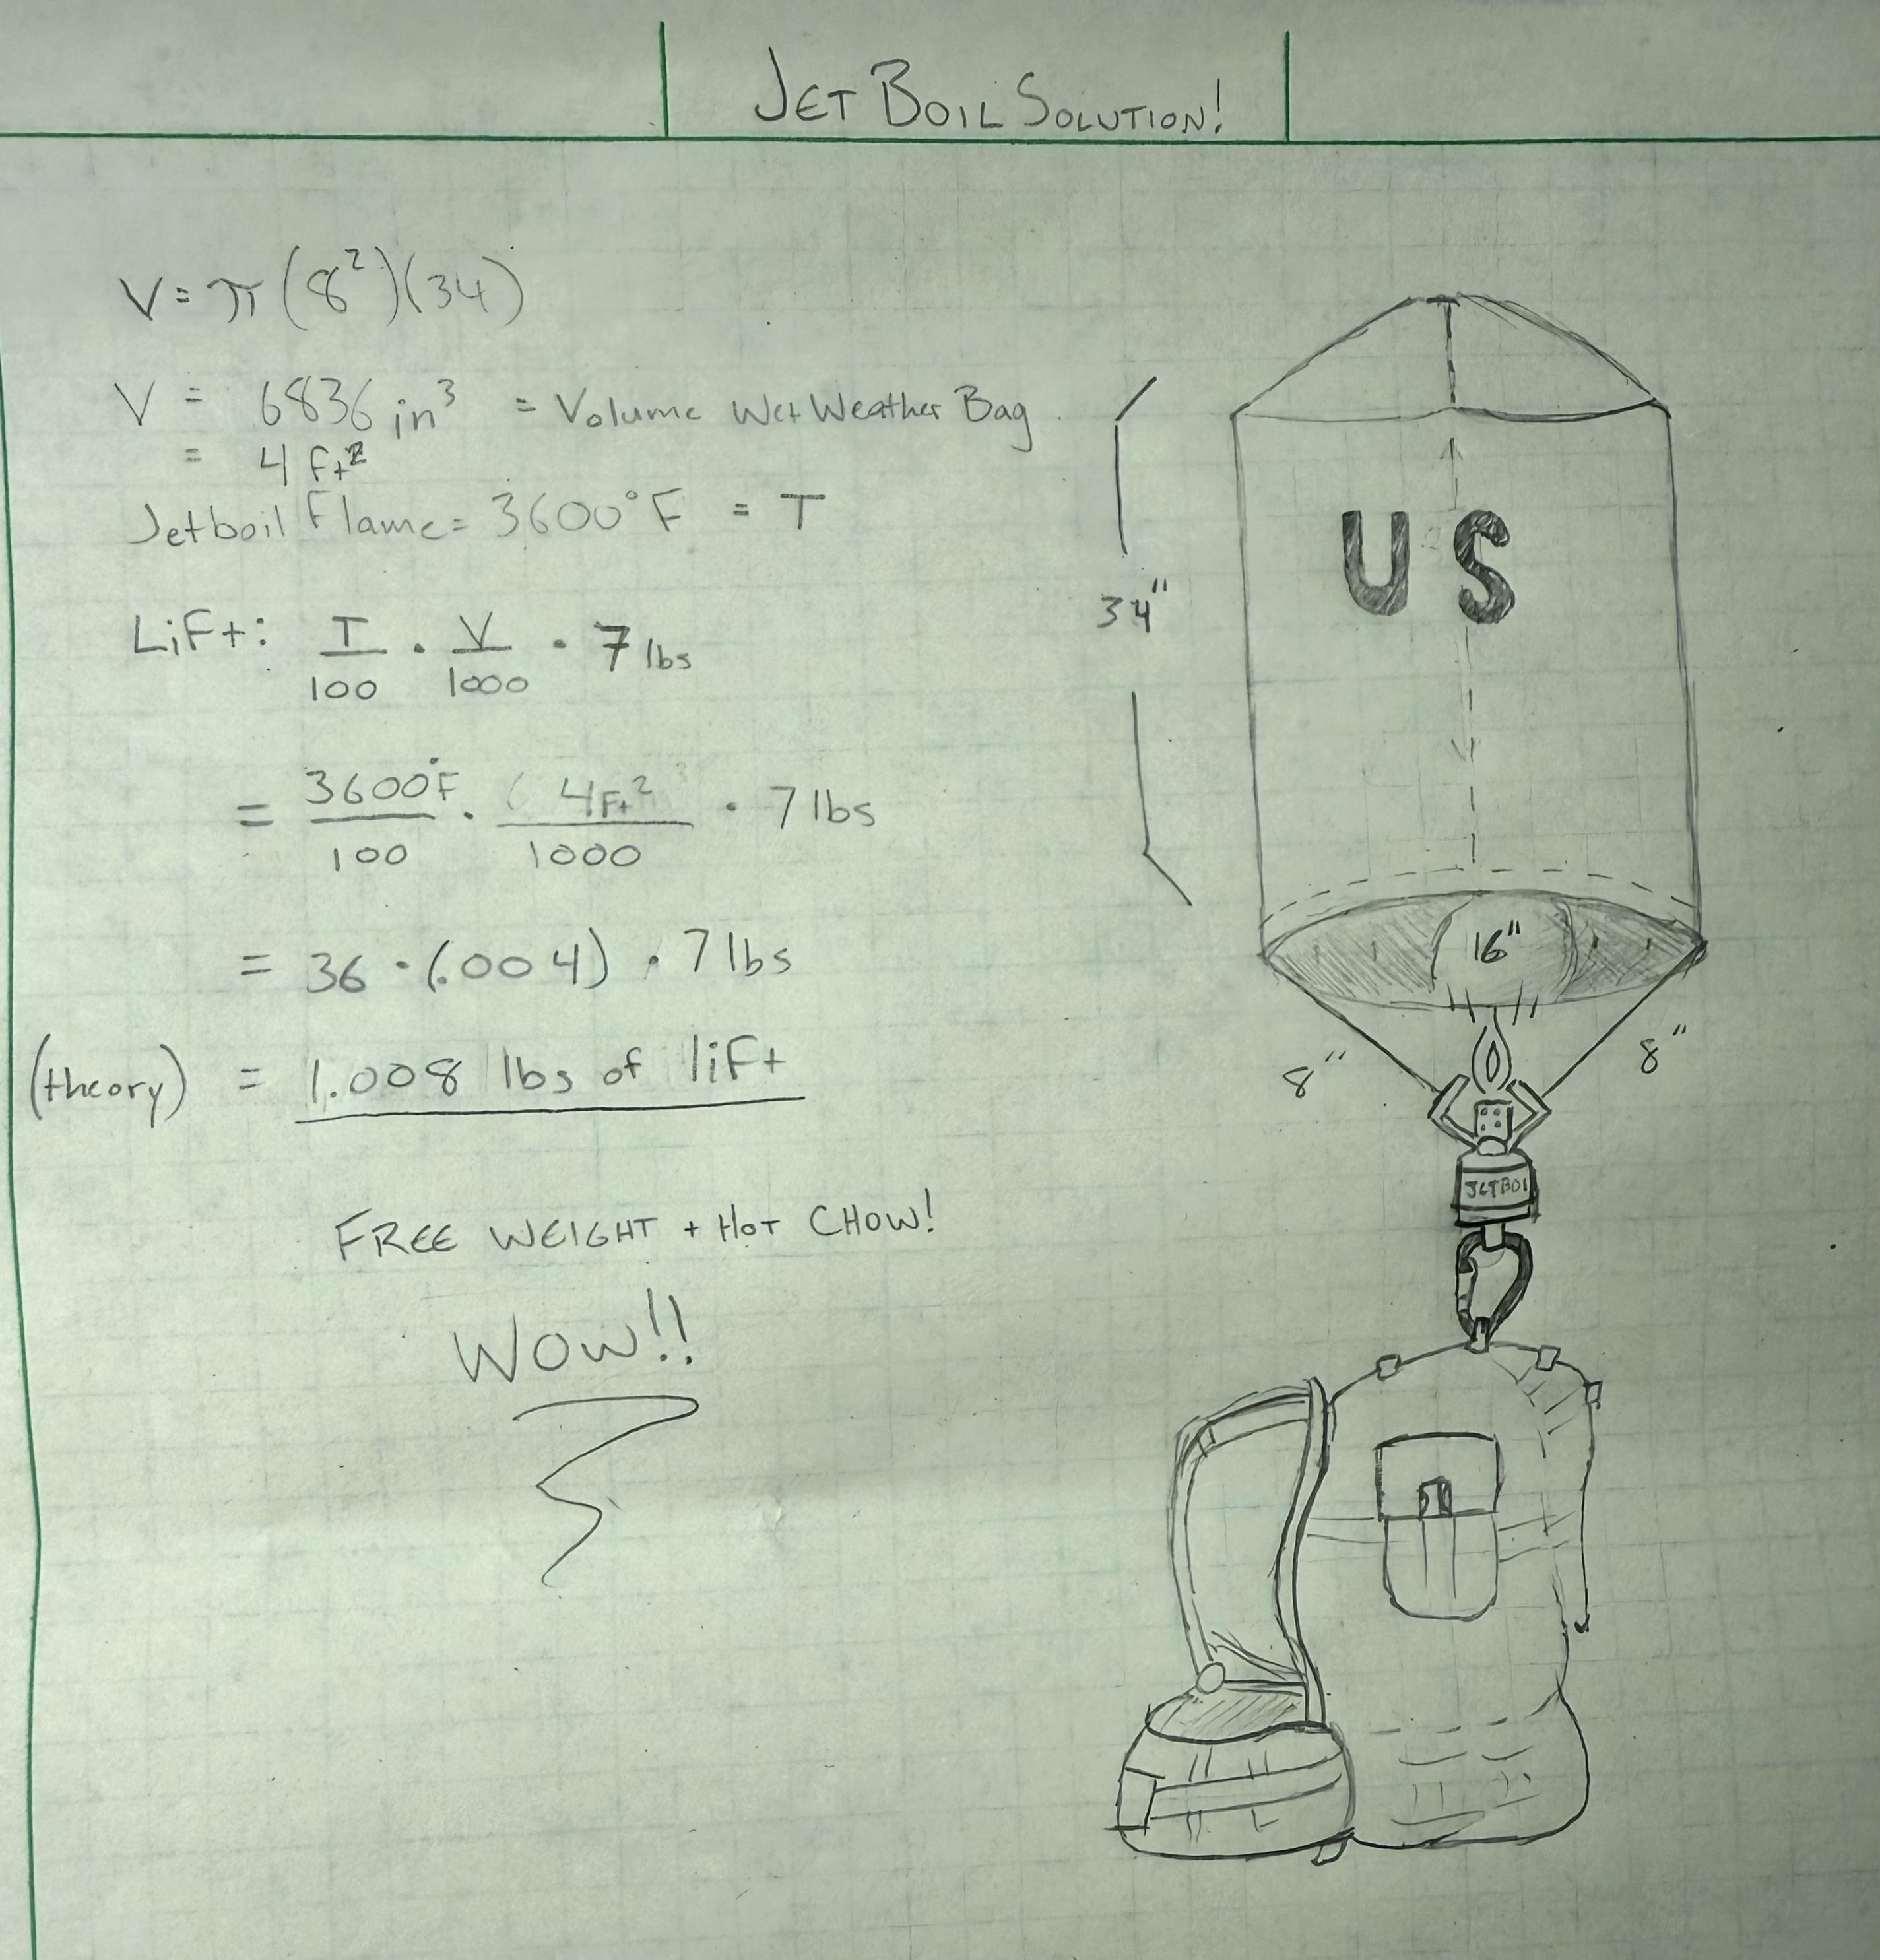 JET BOIL SOLUTION!
V = π (8²)(34)
V = 6836 in³ = Volume Wet Weather Bag
= 4 Ft²
Jetboil Flame = 3600°F = T
LiFt: T/100 · V/1000 · 7 lbs
= 3600°F/100 · (4Ft²/1000 · 7 lbs
= 36 · (.004) · 7 lbs
(theory) = 1.008 lbs of liFt
FREE WEIGHT + HOT CHOW!
WOW!!
34"
US
16"
8"
8"
JETBOI